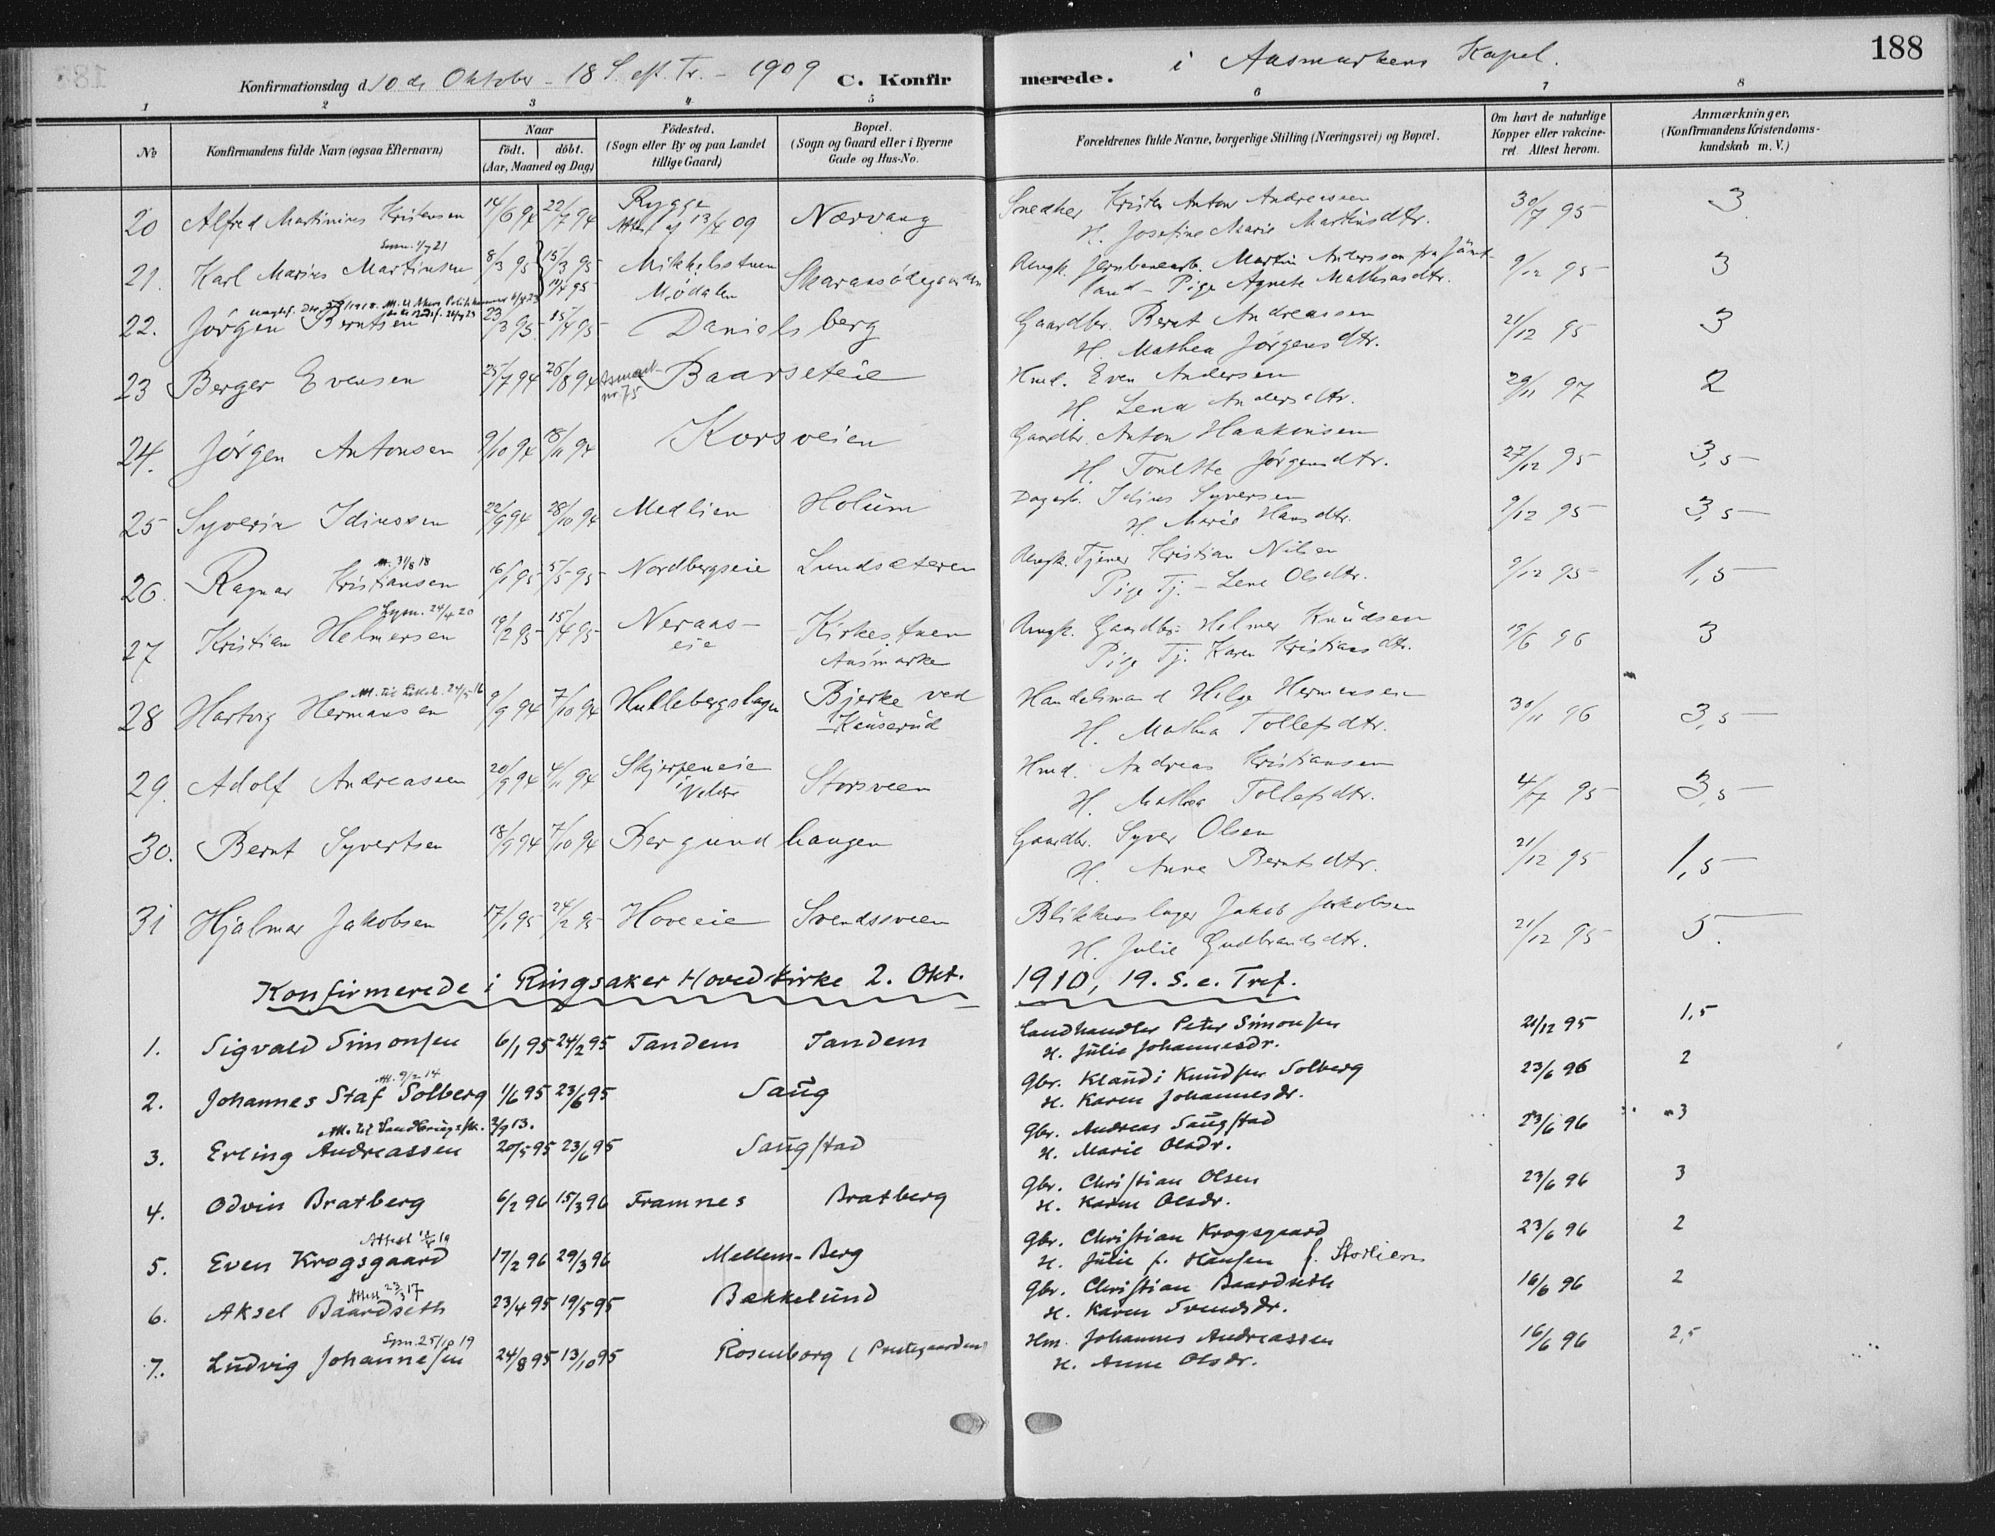 188
Konfirmationsdag d. 10 de Oktober - 18 S. eft. Tr. - 1909 C. Konfirmerede. i Aasmarkens Kapel.
1 2 3 4 5 6 7 8
No Konfirmandens fulde Navn (ogsaa Efternavn) Naar født. døbt. (Aar, Maaned og Dag) Fødested. (Sogn eller By og paa Landet tillige Gaard) Bopæl. (Sogn og Gaard eller i Byerne Gade og Hus-No. Forældrenes fulde Navne, borgerlige Stilling (Næringsvei) og Bopæl. Om havt de naturlige Kopper eller vakcineret. Attest herom. Anmærkninger. (Konfirmandens Kristendomskundskab m. V.)
20 Alfred Martinius Kristensen 14/6 94 22/7 94 Rygge Attest af 13/4 09 Nærvang Snedker Krister Anton Andreassen 30/7 95 3
H. Josefine Marie Martinsdtr.
21. Karl Marius Martinsen 8/3 95 15/3 95 Mikkelsstuen Mødalen Ungk. Jernbanearb. Martin Anderssen fra Jämtland - Pige Agnete Mathiasdtr. 9/12 95 3
22. Jørgen Berntsen 23/3 95 15/4 95 Danielsberg Gaardbr. Bernt Andreassen 21/12 95 3
H. Mathea Jørgensdtr.
23 Berger Evensen 25/7 94 26/8 94 Baarseteie Hmd. Even Andersen 29/11 97 2
H. Lena Andersdtr.
24. Jørgen Antonsen 9/10 94 18/11 94 Korsveien Gaardbr. Anton Haakonsen 27/12 95 3,5
H. Tonette Jørgensdtr.
25 Syverin Idiussen 22/9 94 28/10 94 Medlien Holum Dagarb. Idius Syversen 9/12 95 3,5
H. Marie Hansdtr.
26. Ragnar Kristiansen 16/1 95 5/5 95 Nordbergseie Lundsæteren Ungk. Tjener Kristian Nilsen 9/12 95 1,5
Pige Tj. - Lene Olsdtr.
Lysn. 24/4 20
27 Kristian Helmersen 19/2 95 15/4 95 Neraaseie Kirkestuen Aasmarke Ungk. Gaardbr. Helmer Knudsen 19/6 96 3
Pige Tj. Karen Kristiansdtr.
28 Hartvig Hermansen 9/9 94 7/10 94 Hullebergshagen Bjerke ved Kauserud Handelsmand Helge Hermansen 30/11 96 3,5
H. Mathea Tollefsdtr.
29. Adolf Andreassen 20/9 94 4/11 94 Skjerpeneie i Veldre Storsveen Hmd. Andreas Kristiansen 95 3,5
H. Mathea Tollefsdtr.
30. Bernt Syvertsen 18/9 94 7/10 94 Bergundhaugen Gaardbr. Syver Olsen 21/12 95 1,5
H. Anne Berntsdtr.
31 Hjalmar Jakobsen 17/1 95 24/2 95 Hoveeie Svendsveen Blikkenslager Jakob Jakobsen 21/12 95 5.
H. Julie Gudbrandsdtr.
Konfirmerede i Ringsaker Hovedkirke 2. Okt. 1910, 19. S. e. Tref.
1. Sigvald Simonsen 6/1 95 24/2 95 Tandem Tandem Landhandler Peter Simonsen 21/12 95 1,5
H. Julie Johannesdr.
2. Johannes Staf Solberg 1/6 95 23/6 95 Saug Gbr. Klaudi Knudsen Solberg 23/6 96 2
H. Karen Johannesdr.
3. Erling Andreassen 20/5 95 23/6 95 Saugstad Gbr. Andreas Saugstad 23/6 96 3
H. Marie Olsdr.
4. Odvin Bratberg 6/2 96 15/3 96 Framnes Bratberg Gbr. Christian Olsen 23/6 96 3
H. Karen Olsdr.
5. Even Krogsgaard 17/2 96 29/3 96 Mellem-Berg Gbr. Christian Krogsgaard 23/6 96 2
H. Julie f. Hansen f. Storlien
6. Aksel Baardseth 23/4 95 19/5 95 Bækkelund Gbr. Christian Baardseth 16/6 96 2
H. Karen Svendsdr.
Lysn. 25/10 19
7. Ludvig Johannesen 24/8 95 13/10 95 Rosenborg (Prestegaarden) Hm. Johannes Andreassen 16/6 96 2,5
H. Anne Olsdr.